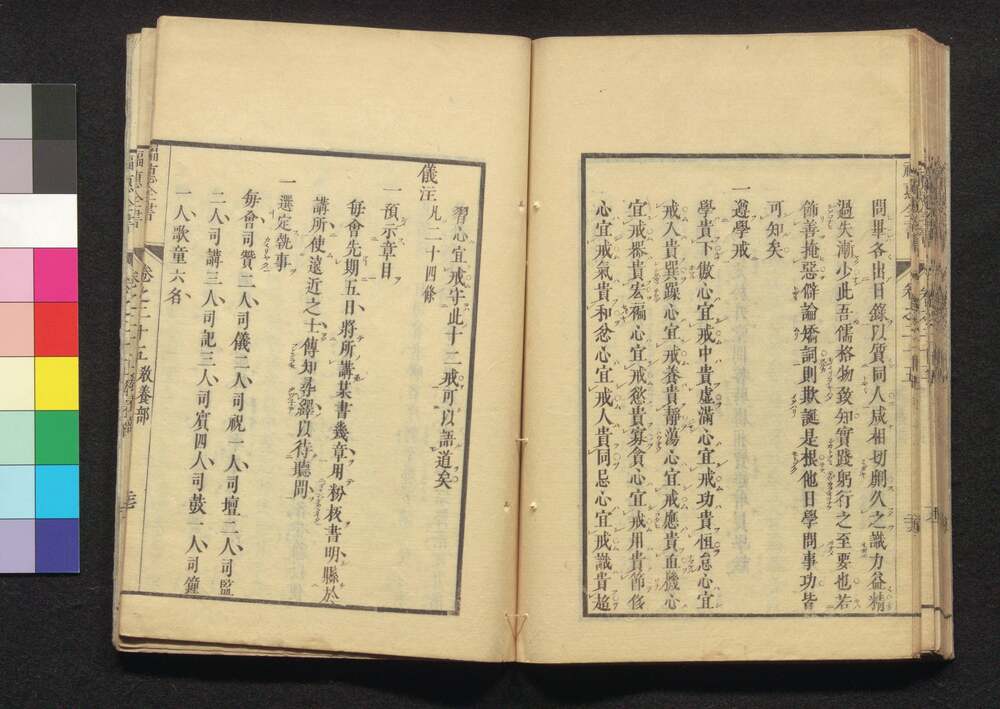 問畢各出日錄以質同人咸相切劘久之識力益精
過失漸少此吾儒格物致知實踐躬行之至要也若
飾善掩惡僻論矯詞則欺誕是根他日學問事功皆
可知矣
一遵學戒
學貴下傲心宜戒中貴虛滿心宜戒功貴恒怠心宜
戒入貴巽躁心宜戒養貴靜蕩心宜戒應貴直機心
宜戒器貴宏褊心宜戒慾貴寡貪心宜戒用貴節侈
心宜戒氣貴和忿心宜戒人貴同忌心宜戒識貴超
習心宜戒守此十二戒可以語道矣
儀注 凡二十四條
一預示章目
每會先期五日將所講某書幾章用粉板書明縣於
講所使遠近之士傳知尋繹以待聽問
一選定執事
每會司贊二人司儀二人司祝一人司壇二人司監
二人司講三人司記三人司賓四人司鼓一人司鐘
一人歌童六名
福惠全書 卷之二十五 教養部